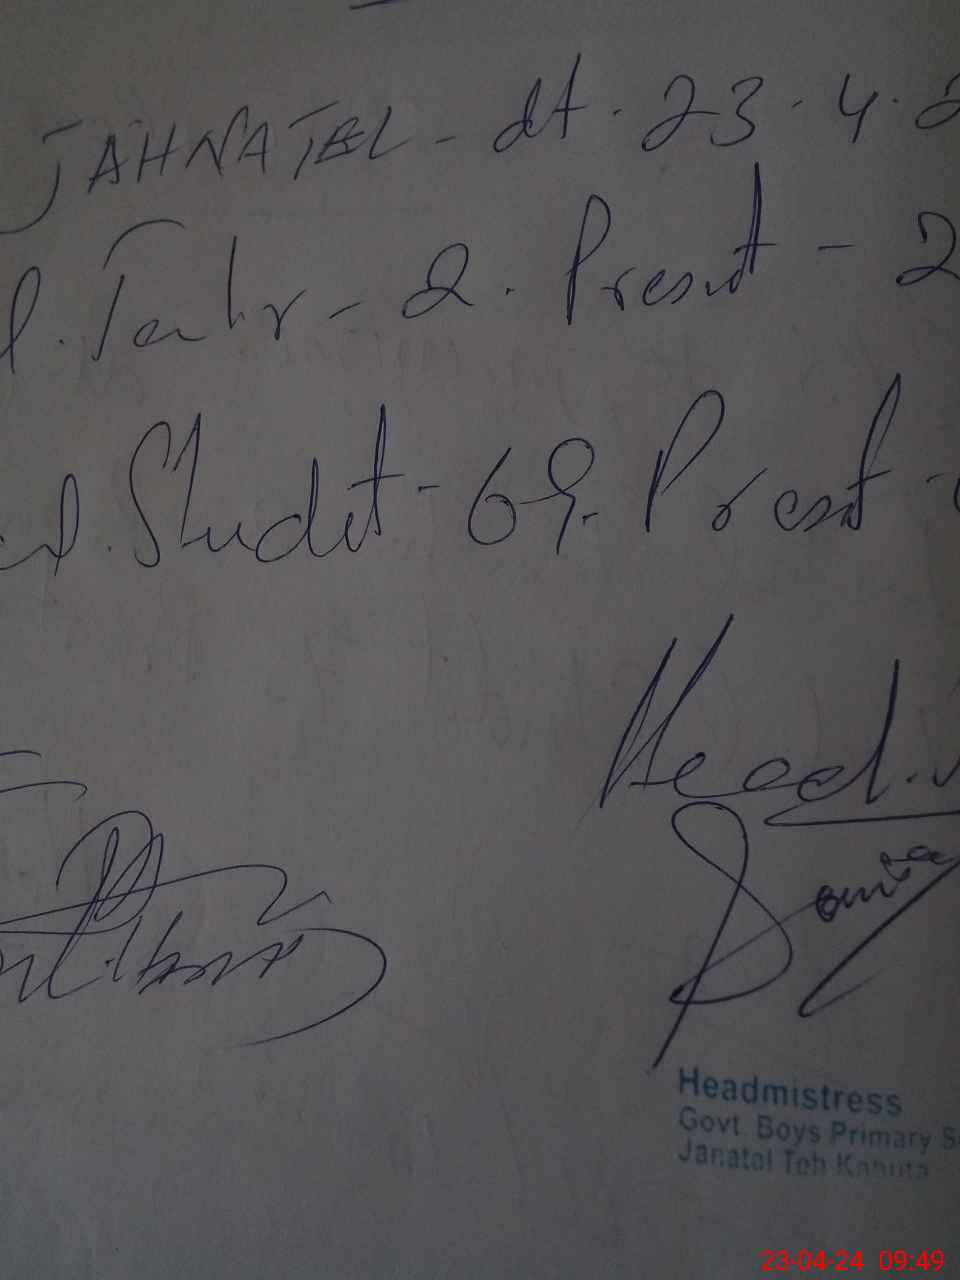 JAHNATEL - dt. 23.4.2
l. Teahr - 2. Presnt - 2
l. Studet - 69. Presnt -
Head.
Headmistress
Govt. Boys Primary S
Janatel Teh Kahuta
23-04-24 09:49